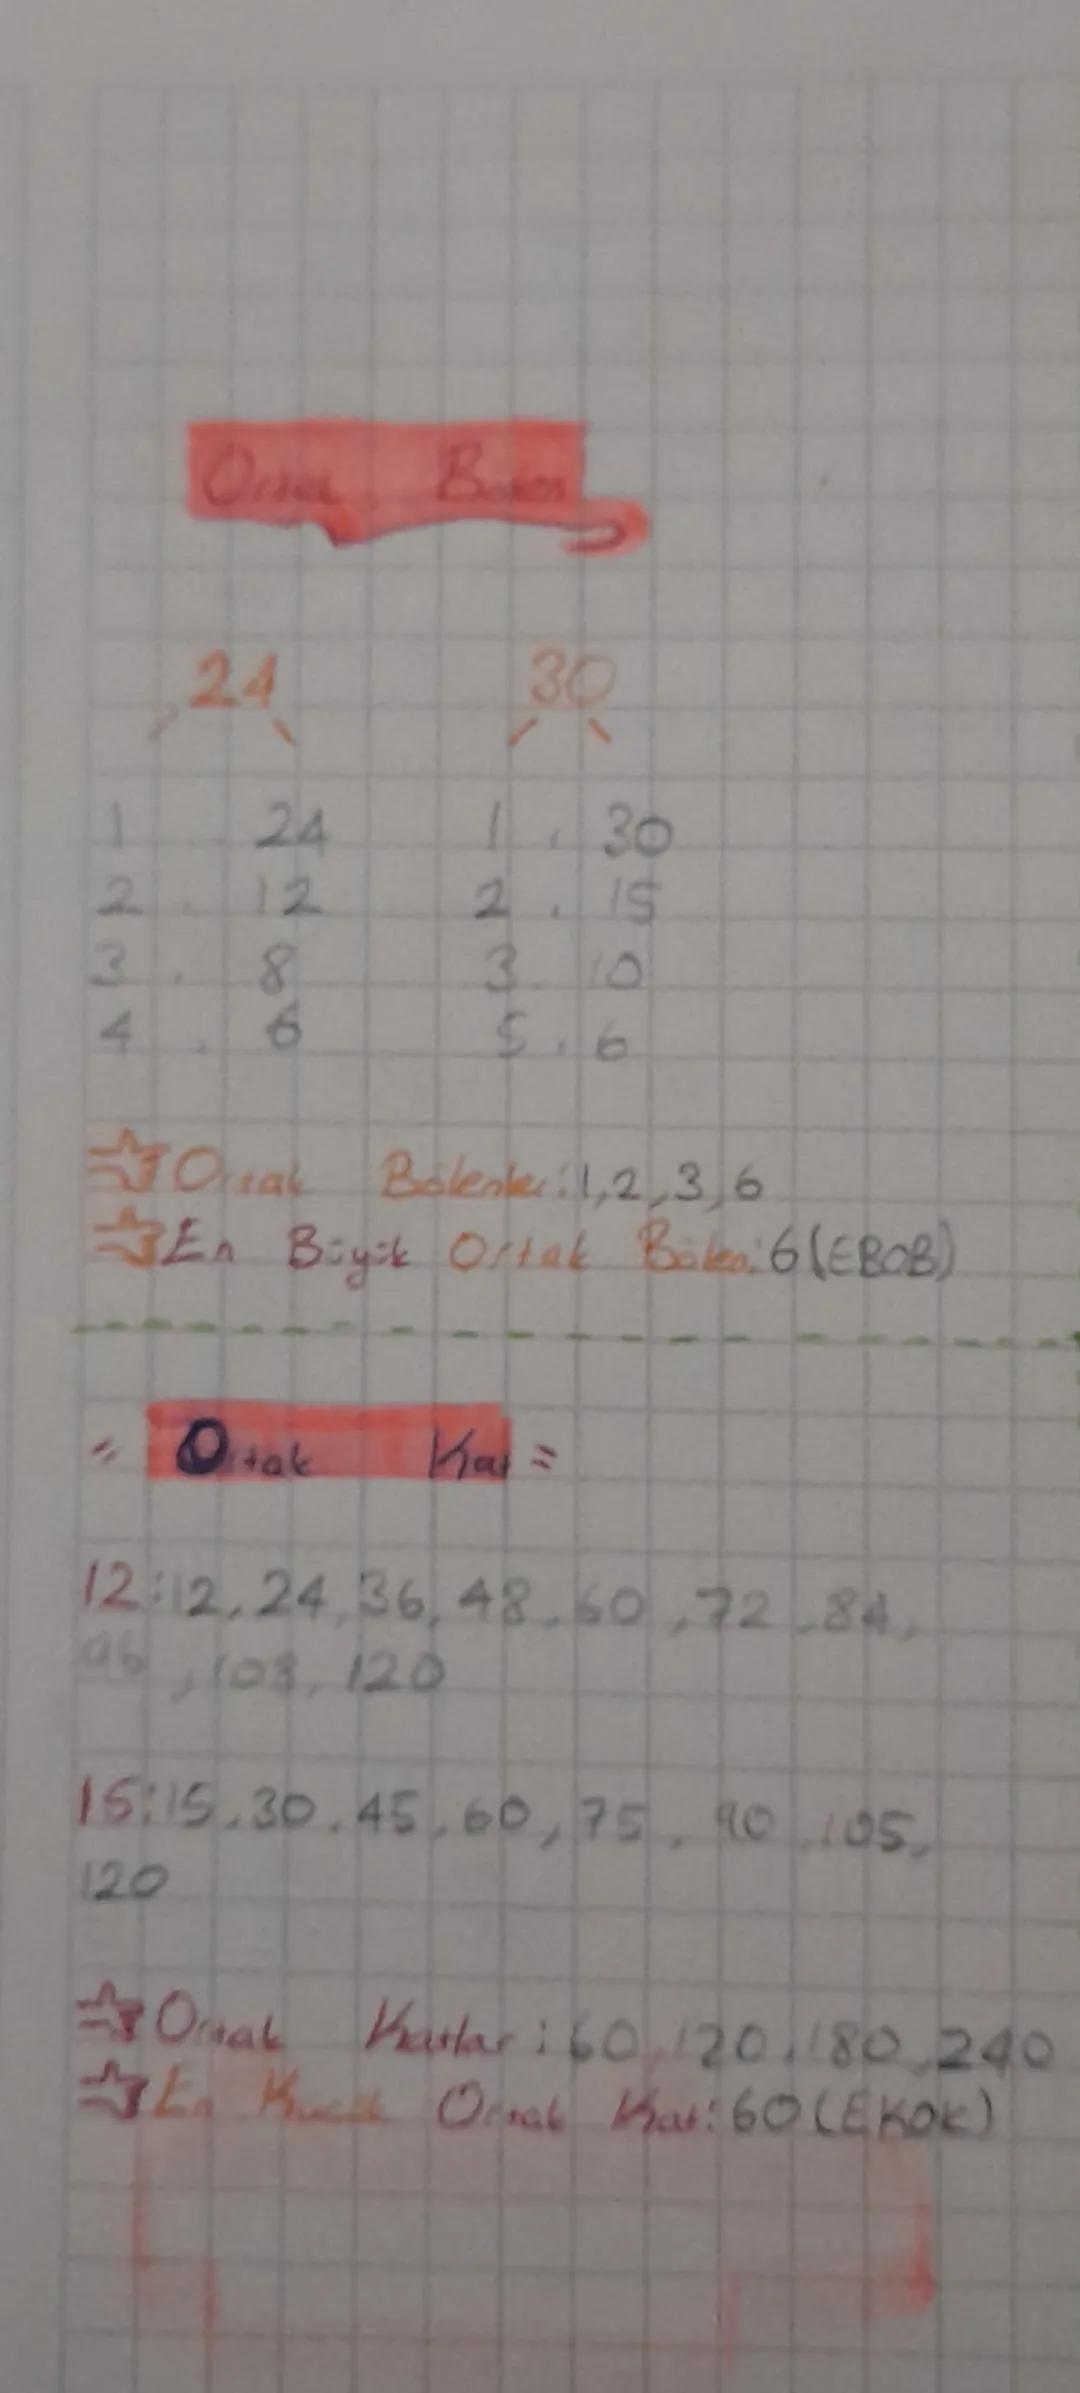 Ortak Bölen
24 30
1 . 24 1 . 30
2 . 12 2 . 15
3 . 8 3 10
4 . 6 5 . 6
Ortak Bölenler: 1, 2, 3, 6
En Büyük Ortak Bölen: 6 (EBOB)
= Ortak Kat =
12: 12, 24, 36, 48, 60, 72, 84,
96, 108, 120
15: 15, 30, 45, 60, 75, 90, 105,
120
Ortak Katlar: 60, 120, 180, 240
En Kucük Ortak Kat: 60 (EKOK)